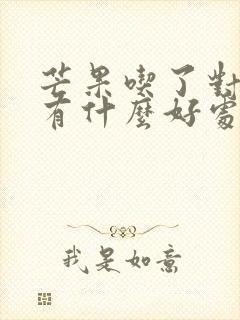 芒果喫了對
有什麼好處
我是如意